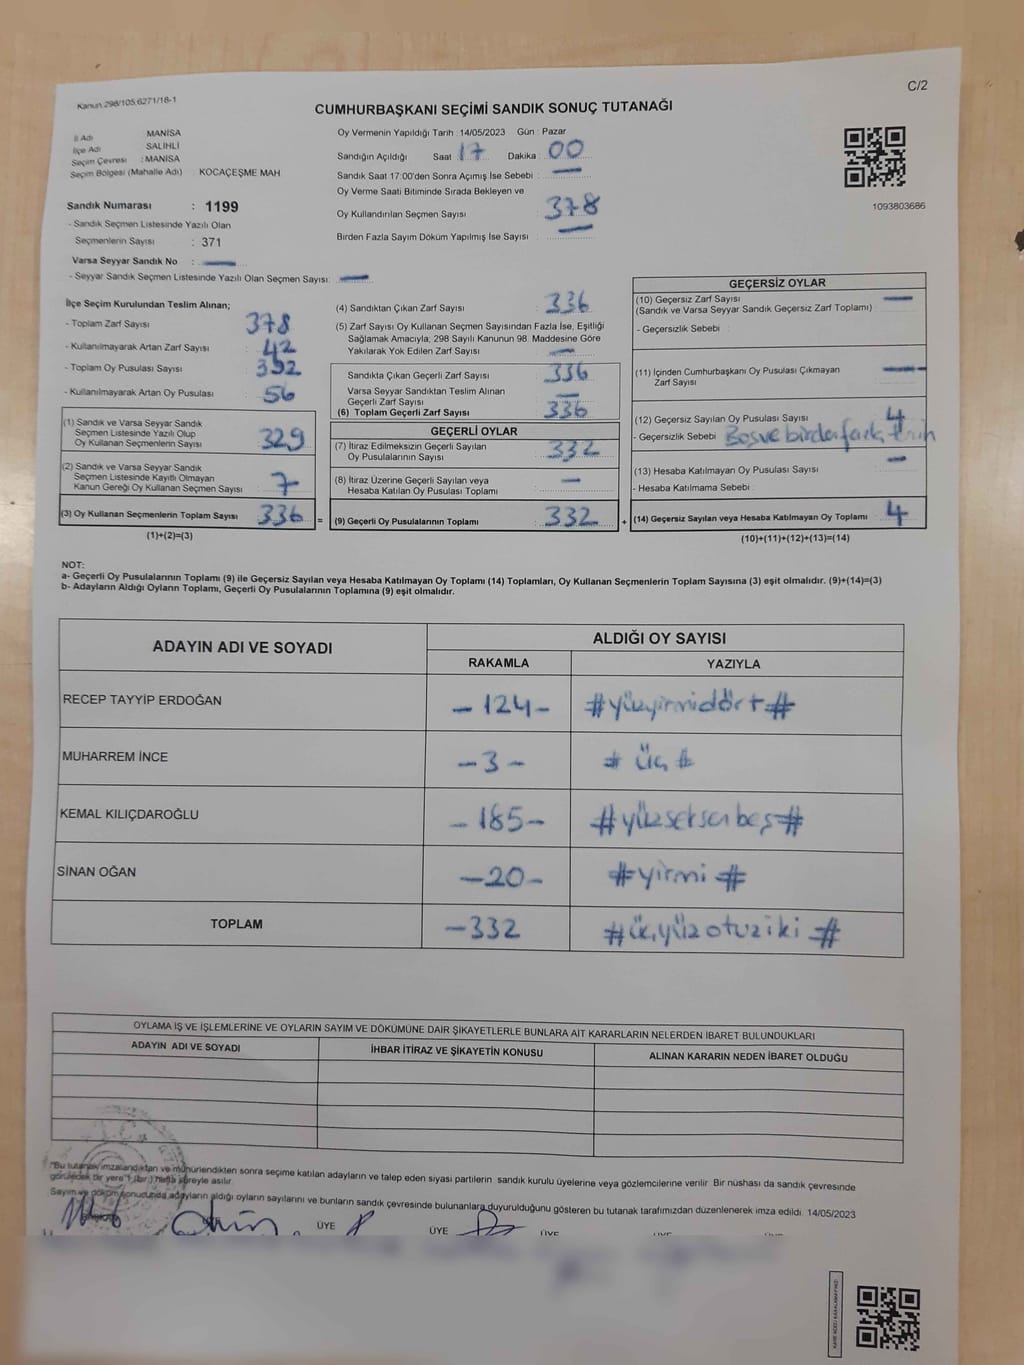 Kanun.298/105,6271/18-1
C/2
CUMHURBAŞKANI SEÇİMİ SANDIK SONUÇ TUTANAĞI
İl Adı MANİSA
İlçe Adı SALİHLİ
Seçim Çevresi : MANİSA
Seçim Bölgesi (Mahalle Adı) : KOCAÇEŞME MAH
Sandık Numarası : 1199
- Sandık Seçmen Listesinde Yazılı Olan
Seçmenlerin Sayısı : 371
Varsa Seyyar Sandık No : —
- Seyyar Sandık Seçmen Listesinde Yazılı Olan Seçmen Sayısı: —
Oy Vermenin Yapıldığı Tarih : 14/05/2023 Gün : Pazar
Sandığın Açıldığı Saat 17 Dakika : 00
Sandık Saat 17:00'den Sonra Açımış İse Sebebi : —
Oy Verme Saati Bitiminde Sırada Bekleyen ve
Oy Kullandırılan Seçmen Sayısı : 378
Birden Fazla Sayım Döküm Yapılmış İse Sayısı : —
1093803686
İlçe Seçim Kurulundan Teslim Alınan;
- Toplam Zarf Sayısı : 378
- Kullanılmayarak Artan Zarf Sayısı : 42
- Toplam Oy Pusulası Sayısı : 392
- Kullanılmayarak Artan Oy Pusulası : 56
(1) Sandık ve Varsa Seyyar Sandık
Seçmen Listesinde Yazılı Olup
Oy Kullanan Seçmenlerin Sayısı : 329
(2) Sandık ve Varsa Seyyar Sandık
Seçmen Listesinde Kayıtlı Olmayan
Kanun Gereği Oy Kullanan Seçmen Sayısı : 7
(3) Oy Kullanan Seçmenlerin Toplam Sayısı 336 =
(1)+(2)=(3)
(4) Sandıktan Çıkan Zarf Sayısı : 336
(5) Zarf Sayısı Oy Kullanan Seçmen Sayısından Fazla İse, Eşitliği
Sağlamak Amacıyla; 298 Sayılı Kanunun 98. Maddesine Göre
Yakılarak Yok Edilen Zarf Sayısı : —
Sandıkta Çıkan Geçerli Zarf Sayısı : 336
Varsa Seyyar Sandıktan Teslim Alınan
Geçerli Zarf Sayısı : —
(6) Toplam Geçerli Zarf Sayısı : 336
GEÇERLİ OYLAR
(7) İtiraz Edilmeksizin Geçerli Sayılan
Oy Pusulalarının Sayısı : 332
(8) İtiraz Üzerine Geçerli Sayılan veya
Hesaba Katılan Oy Pusulası Toplamı : —
(9) Geçerli Oy Pusulalarının Toplamı : 332 +
GEÇERSİZ OYLAR
(10) Geçersiz Zarf Sayısı : —
(Sandık ve Varsa Seyyar Sandık Geçersiz Zarf Toplamı)
- Geçersizlik Sebebi :
(11) İçinden Cumhurbaşkanı Oy Pusulası Çıkmayan
Zarf Sayısı : —
(12) Geçersiz Sayılan Oy Pusulası Sayısı : 4
- Geçersizlik Sebebi : Boş ve birden fazla
(13) Hesaba Katılmayan Oy Pusulası Sayısı : —
- Hesaba Katılmama Sebebi :
(14) Geçersiz Sayılan veya Hesaba Katılmayan Oy Toplamı : 4
(10)+(11)+(12)+(13)=(14)
NOT:
a- Geçerli Oy Pusulalarının Toplamı (9) ile Geçersiz Sayılan veya Hesaba Katılmayan Oy Toplamı (14) Toplamları, Oy Kullanan Seçmenlerin Toplam Sayısına (3) eşit olmalıdır. (9)+(14)=(3)
b- Adayların Aldığı Oyların Toplamı, Geçerli Oy Pusulalarının Toplamına (9) eşit olmalıdır.
ADAYIN ADI VE SOYADI ALDIĞI OY SAYISI
RAKAMLA YAZIYLA
RECEP TAYYİP ERDOĞAN -124- #yüzyirmidört#
MUHARREM İNCE -3- # üç #
KEMAL KILIÇDAROĞLU -185- #yüzseksenbeş#
SİNAN OĞAN -20- #yirmi#
TOPLAM -332 #üçyüzotuziki #
OYLAMA İŞ VE İŞLEMLERİNE VE OYLARIN SAYIM VE DÖKÜMÜNE DAİR ŞİKAYETLERLE BUNLARA AİT KARARLARIN NELERDEN İBARET BULUNDUKLARI
ADAYIN ADI VE SOYADI İHBAR İTİRAZ VE ŞİKAYETİN KONUSU ALINAN KARARIN NEDEN İBARET OLDUĞU
"Bu tutanak imzalandıktan ve mühürlendikten sonra seçime katılan adayların ve talep eden siyasi partilerin sandık kurulu üyelerine veya gözlemcilerine verilir. Bir nüshası da sandık çevresinde
görülebilecek bir yere 1 (bir) hafta süreyle asılır.
Sayım ve döküm sonucunda adayların aldığı oyların sayılarını ve bunların sandık çevresinde bulunanlara duyurulduğunu gösteren bu tutanak tarafımızdan düzenlenerek imza edildi. 14/05/2023
ÜYE ÜYE ÜYE